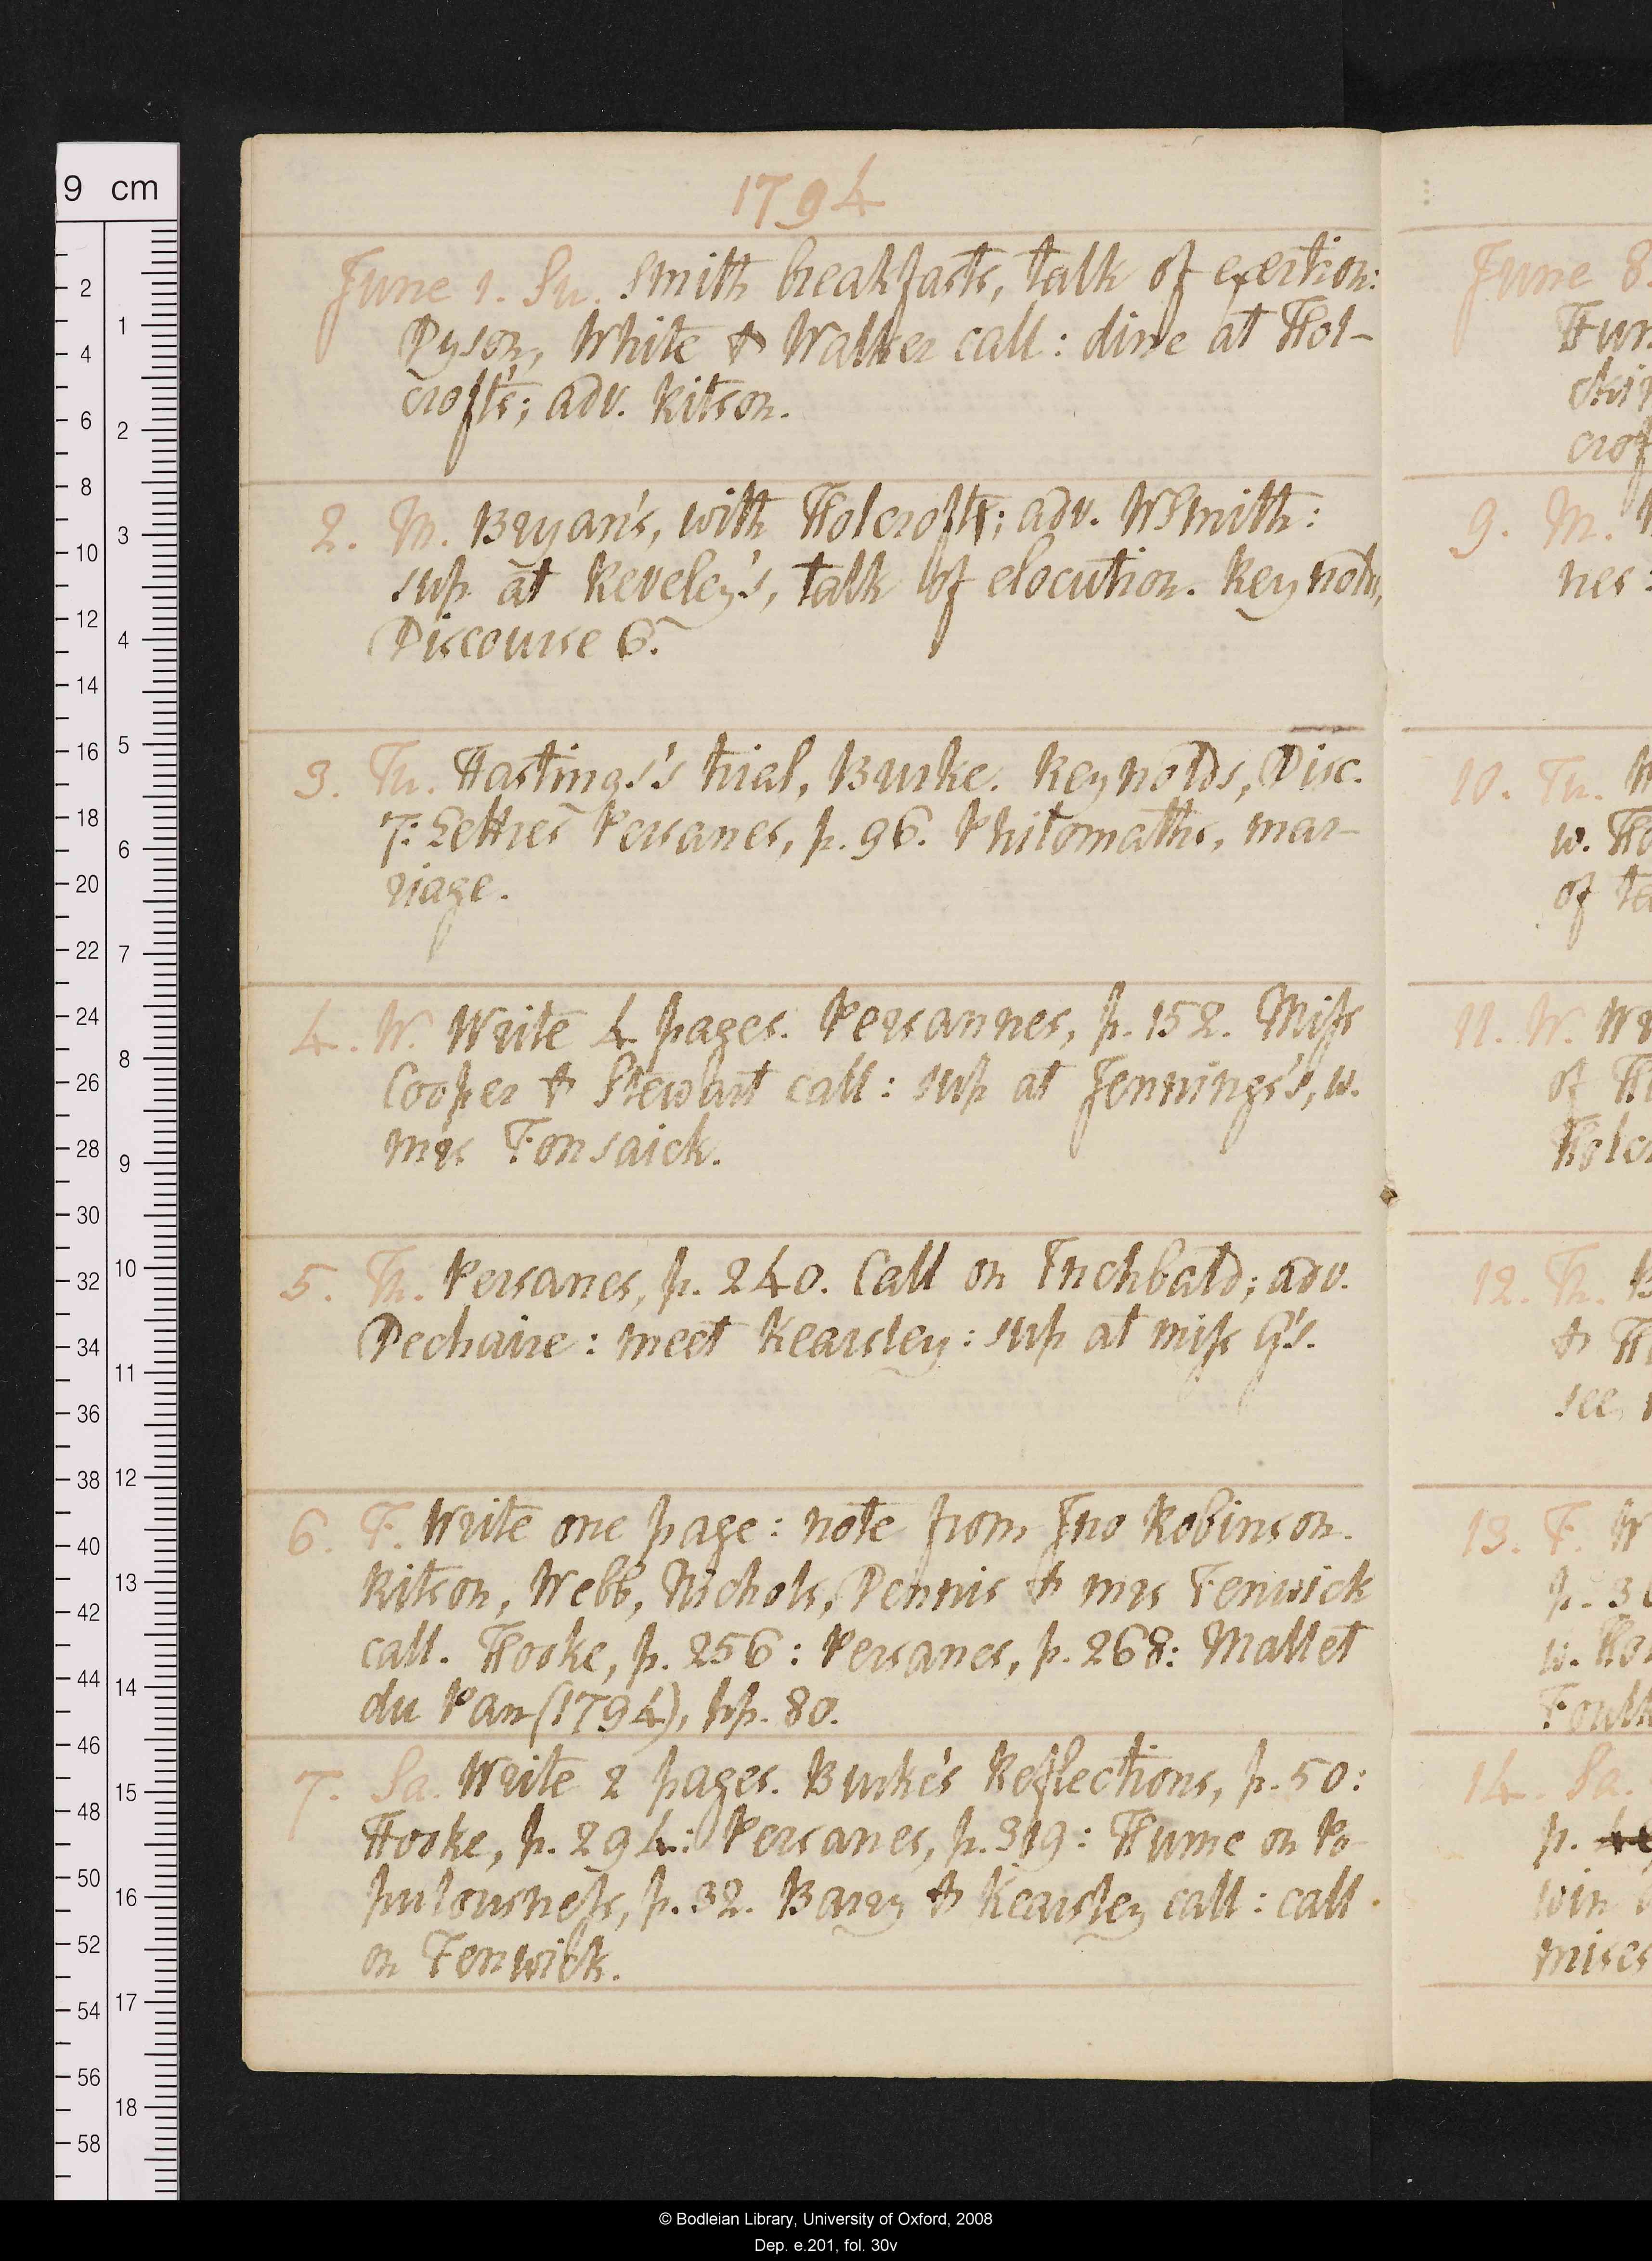 1794
June 1. Su. Smith breakfasts, talk of exertion:
Dyson, White & Walker call: dine at Hol-
croft's; adv. Ritson.
2. M. Bryan's, with Holcroft; adv. WSmith:
sup at Reveley's, talk of elocution. Reynolds,
Discourse 6.
3. Tu. Hastings's trial, Burke. Reynolds, Disc.
7: Lettres Persanes, p. 96. Philomaths, mar-
riage.
4. W. Write 4 pages. Persannes, p. 152. Miss
Cooper & Stewart call: sup at Jennings's, w.
mrs Fonsaick.
5. Th. Persanes, p. 240. Call on Inchbald; adv.
Dechaire: meet Kearsley: sup at miss G's.
6. F. Write one page: note from Jno Robinson.
Ritson, Webb, Nichols, Dennis & mrs Fenwick
call. Hooke, p. 256: Persanes, p. 268: Mallet
du Pan (1794), pp. 80.
7. Sa. Write 2 pages. Burke's Reflections, p. 50:
Hooke, p. 294: Persanes, p. 319: Hume on Po-
pulousness, p. 32. Barry & Kearsley call: call
on Fenwick.
June 8.
9. M.
nes:
10. Tu.
w. Ho
of ta
11. W. Wr
of
Holc
12. Th.
&
see
13. F. W
p. 3
w.
14. Sa.
p.
win
mises
9 cm
2
4
6
8
10
12
14
16
18
20
22
24
26
28
30
32
34
36
38
40
42
44
46
48
50
52
54
56
58
1
2
3
4
5
6
7
8
9
10
11
12
13
14
15
16
17
18
© Bodleian Library, University of Oxford, 2008
Dep. e.201, fol. 30v